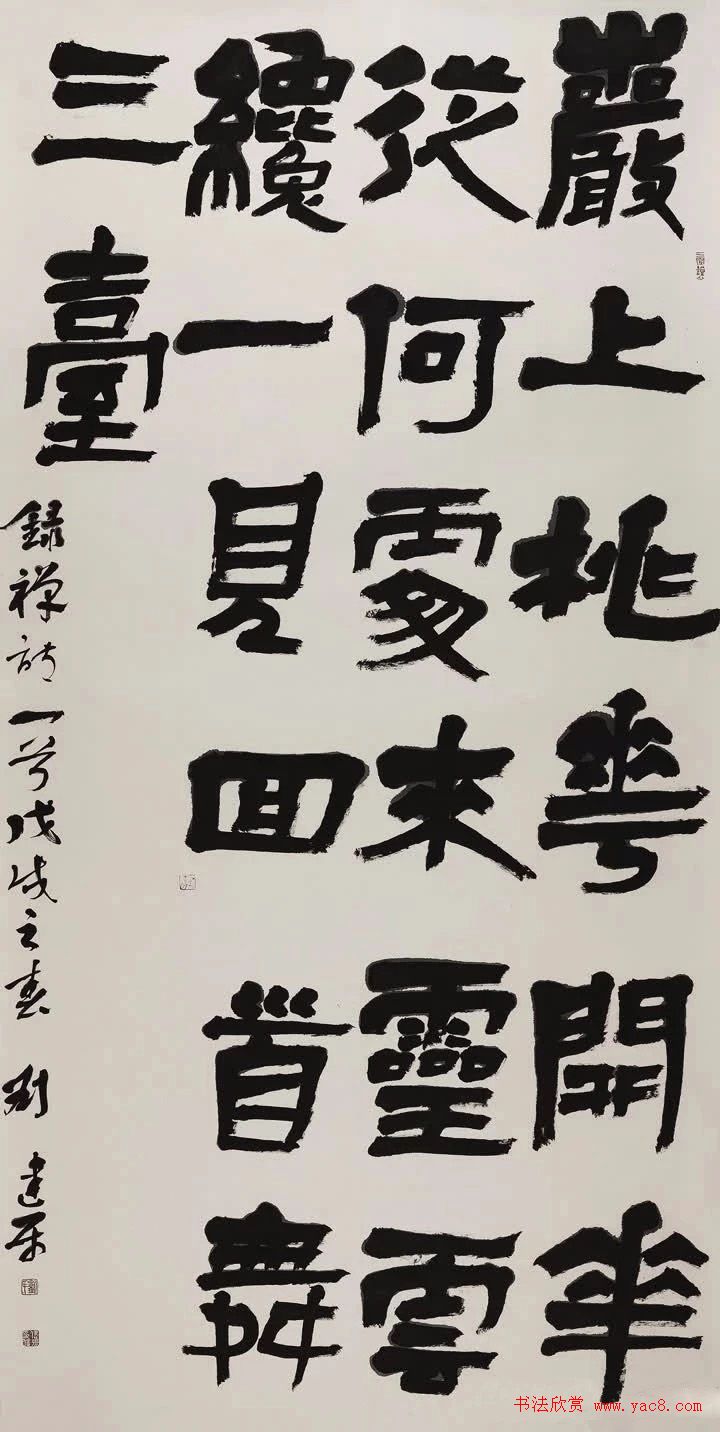 巖上桃華開華
從何處來靈雲
纔一見回首舞
三臺
錄禪詩一首戊戌之春 劉建平
书法欣赏 www.yac8.com